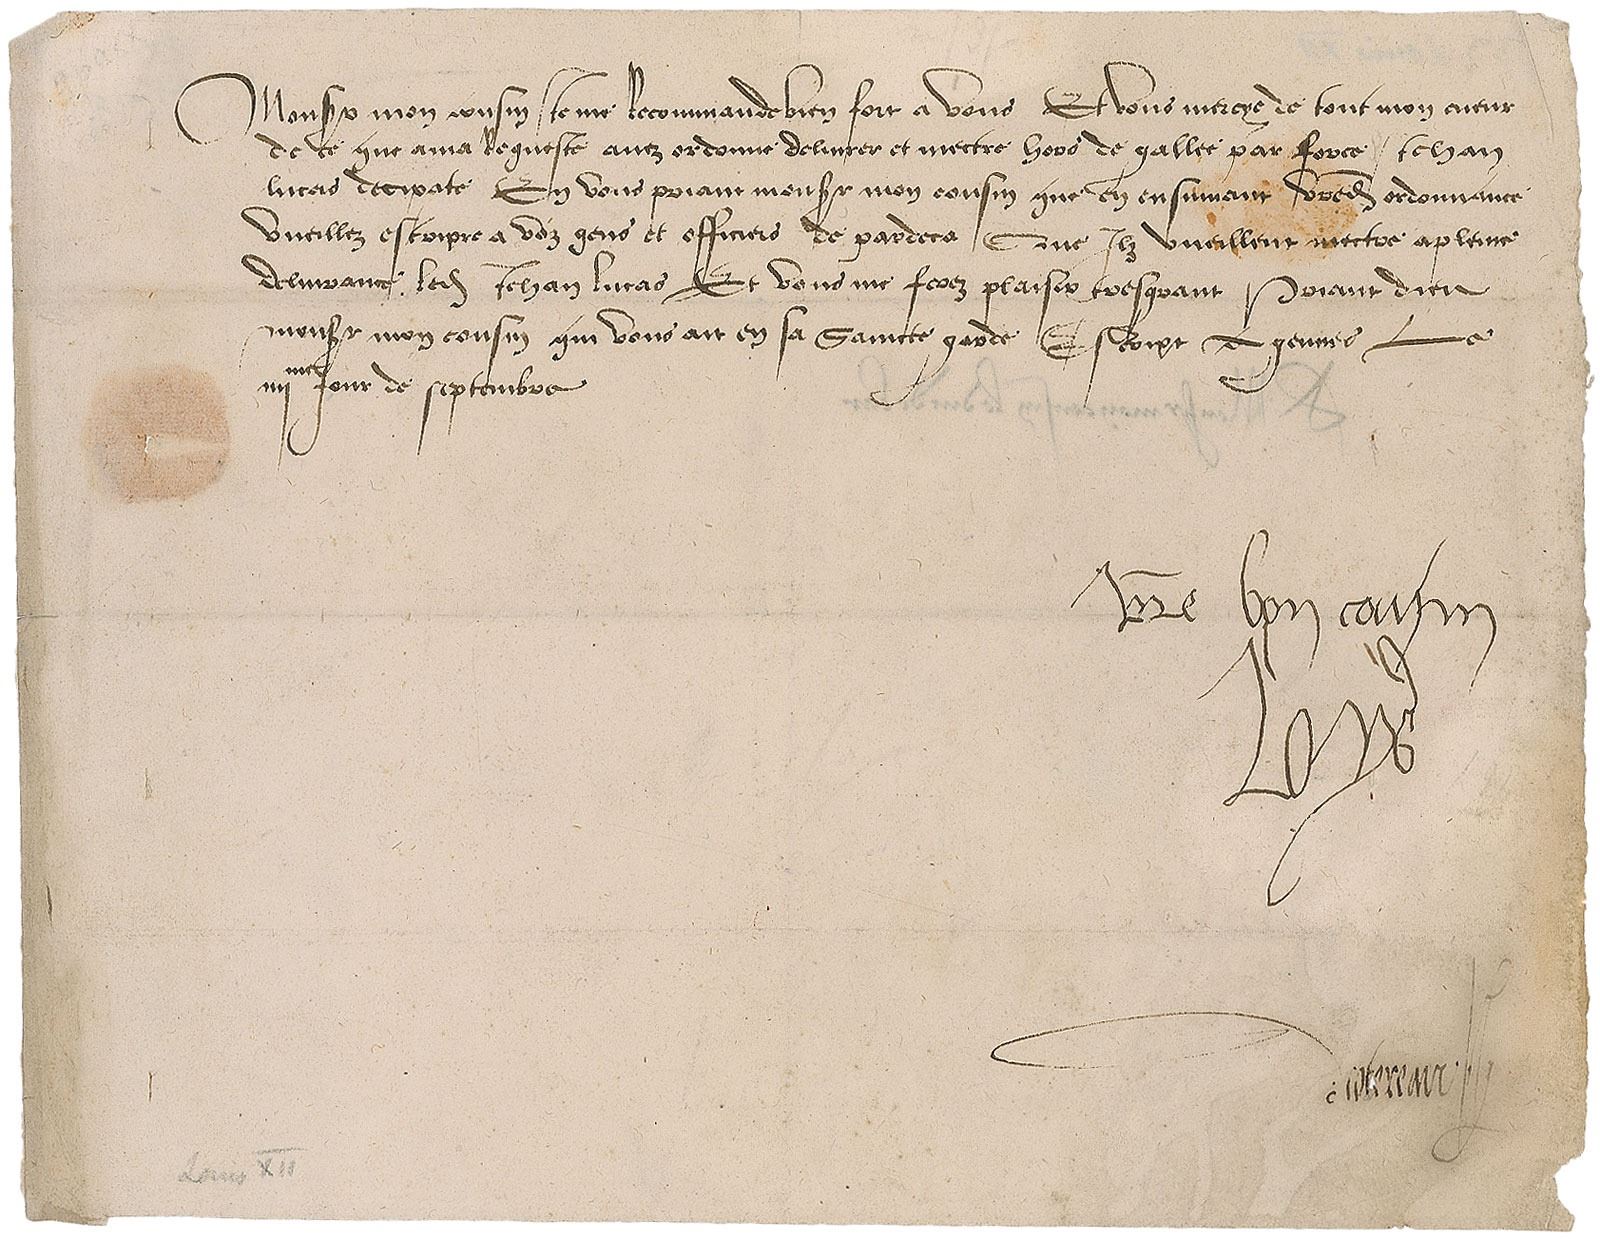 Mons<sup>r</sup> mon cousin Je me Recommande bien fort a vous Et vous mercye de tout mon cueur
de ce que a ma Requeste avez ordonne delivrer et mectre hors de gallee par force Jehan
lucas En vous priant mons<sup>r</sup> mon cousin que en ensuivant vred ordonnance
vueillez escripre a voz gens et officiers de pardeca Que Ilz vueillent mectre a pleine
delivrance led Jehan lucas Et vous me ferez plaisir tresgrant Priant dieu
mons<sup>r</sup> mon cousin qui vous ait en sa Saincte garde Escript A gennes Le
iiii<sup>me</sup> Jour de septembre
Vre bon cousin
Loys
Cotereau
Louis XII